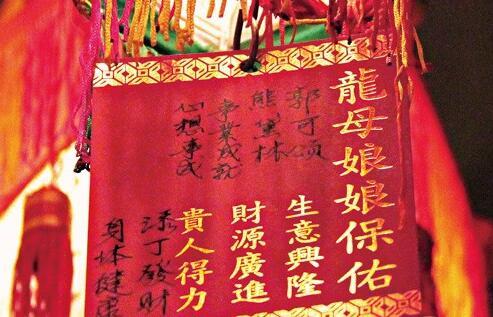 龍母娘娘保佑
郭可頌
熊黛林
事業成就
心想事成
生意興隆
財源廣進
貴人得力
添丁發財
身体健康